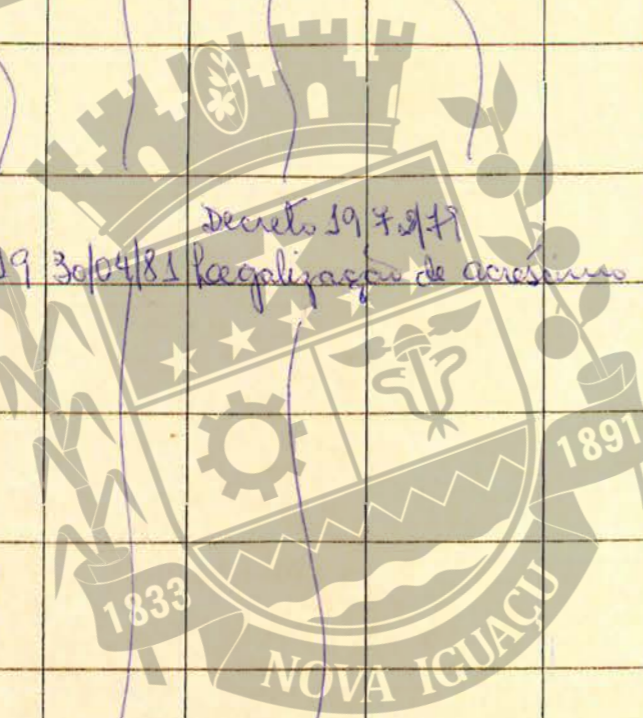 Decreto 19
19 30/04/81 Legalização de acréscimo
1891
1833
NOVA IGUAÇU